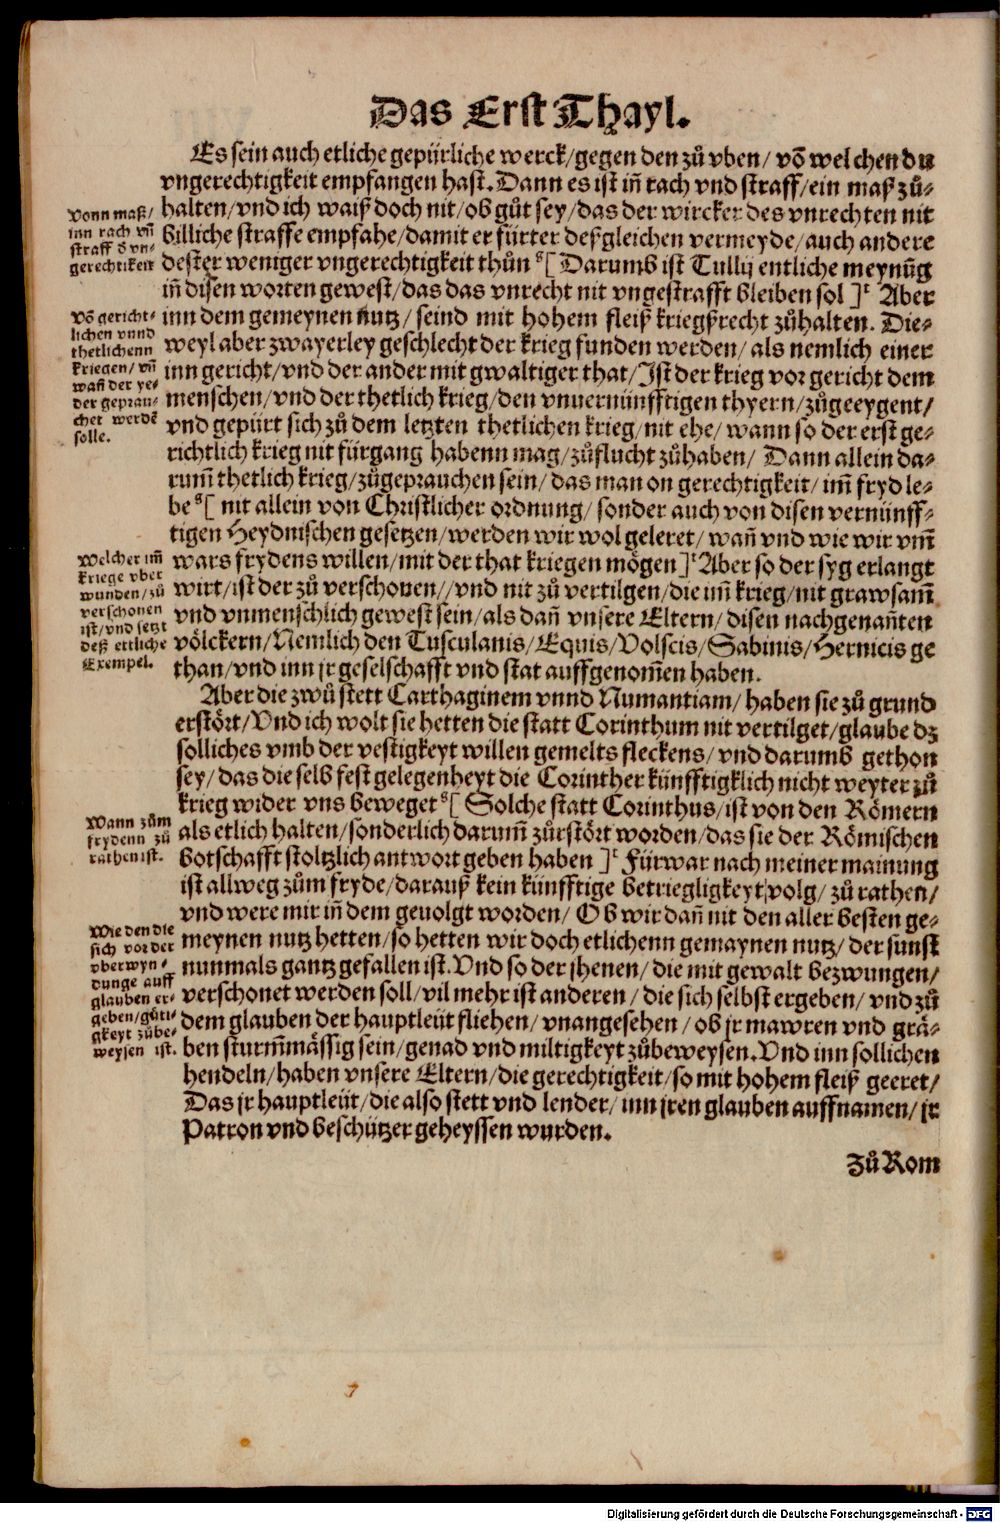 Das Erst Thayl.
Es sein auch etliche gepürliche werck/gegen den zů vben/ võ welchen du
vngerechtigkeit empfangen hast. Dann es ist iñ rach vnd straff/ein maß zů-
halten/vnd ich waiß doch nit/ob gůt sey/das der wircker des vnrechten nit
billiche straffe empfahe/damit er fürter deßgleichen vermeyde/auch andere
dester weniger vngerechtigkeit thůn ˢ[ Darumb ist Tullij entliche meynũg
iñ disen worten gewest/das das vnrecht nit vngestrafft bleiben sol ]ᵗ Aber
inn dem gemeynen nutz/ seind mit hohem fleiß kriegßrecht zůhalten. Die-
weyl aber zwayerley geschlecht der krieg funden werden/ als nemlich einer
inn gericht/vnd der ander mit gwaltiger that/Ist der krieg vor gericht dem
menschen/vnd der thetlich krieg/den vnuernünfftigen thyern/zůgeeygent/
vnd gepürt sich zů dem letzten thetlichen krieg/nit ehe/ wann so der erst ge-
richtlich krieg nit fürgang habenn mag/zůflucht zůhaben/ Dann allein da-
rum̃ thetlich krieg/zůgeprauchen sein/das man on gerechtigkeit/im̃ fryd le-
be ˢ[ nit allein von Christlicher ordnung/sonder auch von disen vernünff-
tigen Heydnischen gesetzen/werden wir wol geleret/wañ vnd wie wir vm̃
wars frydens willen/mit der that kriegen mögen ]ᵗ Aber so der syg erlangt
wirt/ist der zů verschonen//vnd nit zů vertilgen/die im̃ krieg/nit grawsam̃
vnd vnmenschlich gewest sein/als dañ vnsere Eltern/disen nachgenañten
völckern/Nemlich den Tusculanis/Equis/Volscis/Sabinis/Hernicis ge
than/vnd inn jr geselschafft vnd stat auffgenom̃en haben.
Aber die zwů stett Carthaginem vnnd Numantiam/haben sie zů grund
erstört/Vnd ich wolt sie hetten die statt Corinthum nit vertilget/glaube dz
solliches vmb der vestigkeyt willen gemelts fleckens/vnd darumb gethon
sey/das die selb fest gelegenheyt die Corinther künfftigklich nicht weyter zů
krieg wider vns beweget ˢ[ Solche statt Corinthus/ist von den Römern
als etlich halten/sonderlich darum̃ zůrstört worden/das sie der Römischen
botschafft stoltzlich antwort geben haben ]ᵗ Fürwar nach meiner mainung
ist allweg zům fryde/darauß kein künfftige betriegligkeyt volg/zů rathen/
vnd were mir iñ dem geuolgt worden/ Ob wir dañ nit den aller besten ge-
meynen nutz hetten/so hetten wir doch etlichenn gemaynen nutz/der sunst
nunmals gantz gefallen ist. Vnd so der jhenen/die mit gewalt bezwungen/
verschonet werden soll/vil mehr ist anderen/die sich selbst ergeben/vnd zů
dem glauben der hauptleüt fliehen/vnangesehen/ob jr mawren vnd grä-
ben sturm̃mässig sein/genad vnd miltigkeyt zůbeweysen. Vnd inn sollichen
hendeln/haben vnsere Eltern/die gerechtigkeit/so mit hohem fleiß geeret/
Das jr hauptleüt/die also stett vnd lender/inn jren glauben auffnamen/jr
Patron vnd beschützer geheyssen wurden.
Zů Rom
Vonn maß/
inn rach vñ
straff d vn-
gerechtikeit
Võ gericht-
lichen vnnd
thetlichenn
kriegen/vñ
wañ der ye-
der geprau-
chet werdẽ
solle.
Welcher im̃
kriege vber
wunden/zů
verschonen
ist/vnd setzt
deß ettliche
Exempel.
Wann zům
frydenn zů
rathen ist.
Wie den die
sich vor der
vberwyn-
dunge auff
glauben er-
geben/gůti-
gkeyt zůbe-
weysen ist.
Digitalisierung gefördert durch die Deutsche Forschungsgemeinschaft - DFG